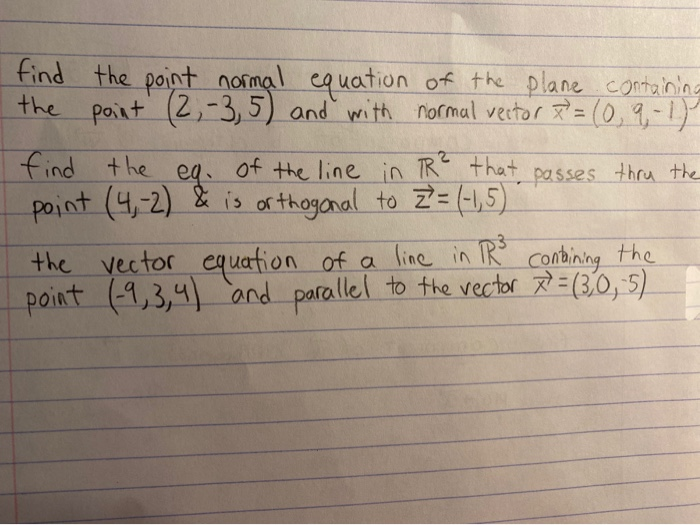 find the point normal equation of the plane containing
the point (2,-3,5) and with normal vector x⃗ = (0, 9, -1)
find the eq. of the line in ℝ² that passes thru the
point (4,-2) & is orthogonal to z⃗ = (-1,5)
the vector equation of a line in ℝ³ contining the
point (-9,3,4) and parallel to the vector x⃗ = (3,0,-5)